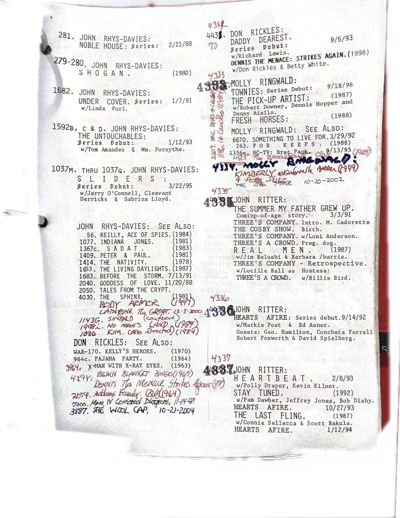 281. JOHN RHYS-DAVIES:
NOBLE HOUSE: Series: 2/21/88
279-280. JOHN RHYS-DAVIES:
S H O G A N. (1980)
1682. JOHN RHYS-DAVIES:
UNDER COVER. Series: 1/7/91
w/Linda Purl.
1592B, C & D. JOHN RHYS-DAVIES:
THE UNTOUCHABLES:
Series Debut: 1/12/93
w/Tom Amandes & Wm. Forsythe.
1037M. THRU 1037Q. JOHN RHYS-DAVIES:
S L I D E R S :
Series Debut: 3/22/95
w/Jerry O'Connell, Cleavant
Derricks & Sabrina Lloyd.
JOHN RHYS-DAVIES: SEE ALSO:
56. REILLY, ACE OF SPIES. (1984)
1077. INDIANA JONES. (1981)
1367c. S A D A T. (1983)
1409. PETER & PAUL. (1981)
1414. THE NATIVITY. (1978)
1653. THE LIVING DAYLIGHTS. (1987)
1683. BEFORE THE STORM. 7/13/91
2040. GODDESS OF LOVE. 11/20/88
2050. TALES FROM THE CRYPT.
4030. THE SPHINX. (1981)
BODY ARMOR (1997)
DON RICKLES: SEE ALSO:
WAR-170. KELLY'S HEROES. (1970)
964c. PAJAMA PARTY. (1964)
X-MAN WITH X-RAY EYES. (1963)
BEACH BLANKET BINGO (1965)
3887. THE WOOL CAP. 10-21-2004
70
DON RICKLES:
DADDY DEAREST. 9/5/93
Series Debut:
w/Richard Lewis.
DENNIS THE MENACE: STRIKES AGAIN. (1998)
w/Don Rickles & Betty White.
MOLLY RINGWALD:
TOWNIES: Series Debut: 9/18/96
THE PICK-UP ARTIST: (1987)
w/Robert Downey, Dennis Hopper and
Danny Aiello.
FRESH HORSES: (1988)
MOLLY RINGWALD: SEE ALSO:
6670. SOMETHING TO LIVE FOR. 3/29/92
263. P O R K E P S. (1988)
MOLLY RINGWALD:
KIMBERLY (1999)
10-20-2002
4335
JOHN RITTER:
THE SUMMER MY FATHER GREW UP.
Coming-of-age story. 3/3/91
THREE'S COMPANY. Intro. M. Cadorette
THE COSBY SHOW. Birth.
THREE'S COMPANY. w/Loni Anderson.
THREE'S A CROWD. Preg. dog.
R E A L M E N. (1987)
w/Jim Belushi & Barbara Barrie.
THREE'S COMPANY - Retrospective.
w/Lucille Ball as Hostess:
THREE'S A CROWD. w/Billie Bird.
4336
JOHN RITTER:
HEARTS AFIRE: Series debut. 9/14/92
w/Markie Post & Ed Asner.
Guests: Geo. Hamilton, Conchata Ferrell
Robert Foxworth & David Spielberg.
4339
JOHN RITTER:
H E A R T B E A T. 2/8/93
w/Polly Draper, Kevin Kilner.
STAY TUNED. (1992)
w/Pam Dawber, Jeffrey Jones, Bob Dishy.
HEARTS AFIRE. 10/27/93
THE LAST FLING. (1987)
w/Connie Sellecca & Scott Bakula.
HEARTS AFIRE. 1/12/94